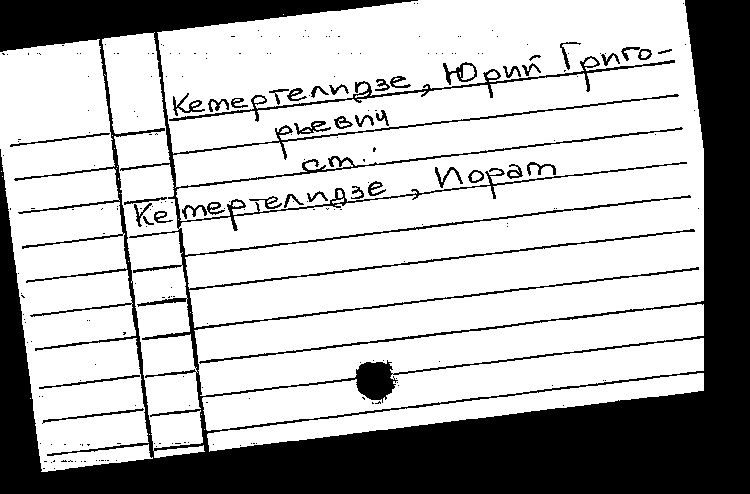 Кемертелидзе, Юрий Григо-
рьевич
см.:
Кемертелидзе, Иорам